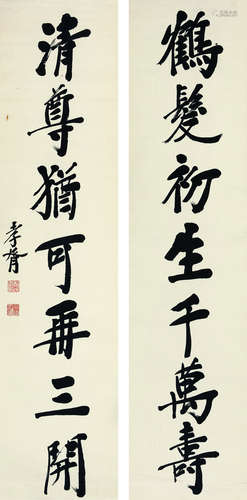 鶴髮初生千萬壽
清尊猶可再三開
孝胥